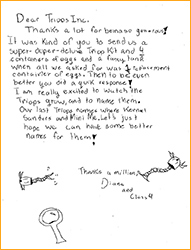 Dear Triops Inc.
Thanks a lot for being so generous!
It was Kind of you to send us a
super-duper-deluxe Triop Kit and 4
containers of eggs and a fancy tank
when all we asked for was 1 replacement
container of eggs. Then to be even
better you did a quik response!
I am really excited to watch the
Triops grow, and to name them.
Our last Triops names where Kermit
Sanders and Mini Me. Let's just
hope we can have some better
names for them!
Thanks a million,
Diana
and
Class 9